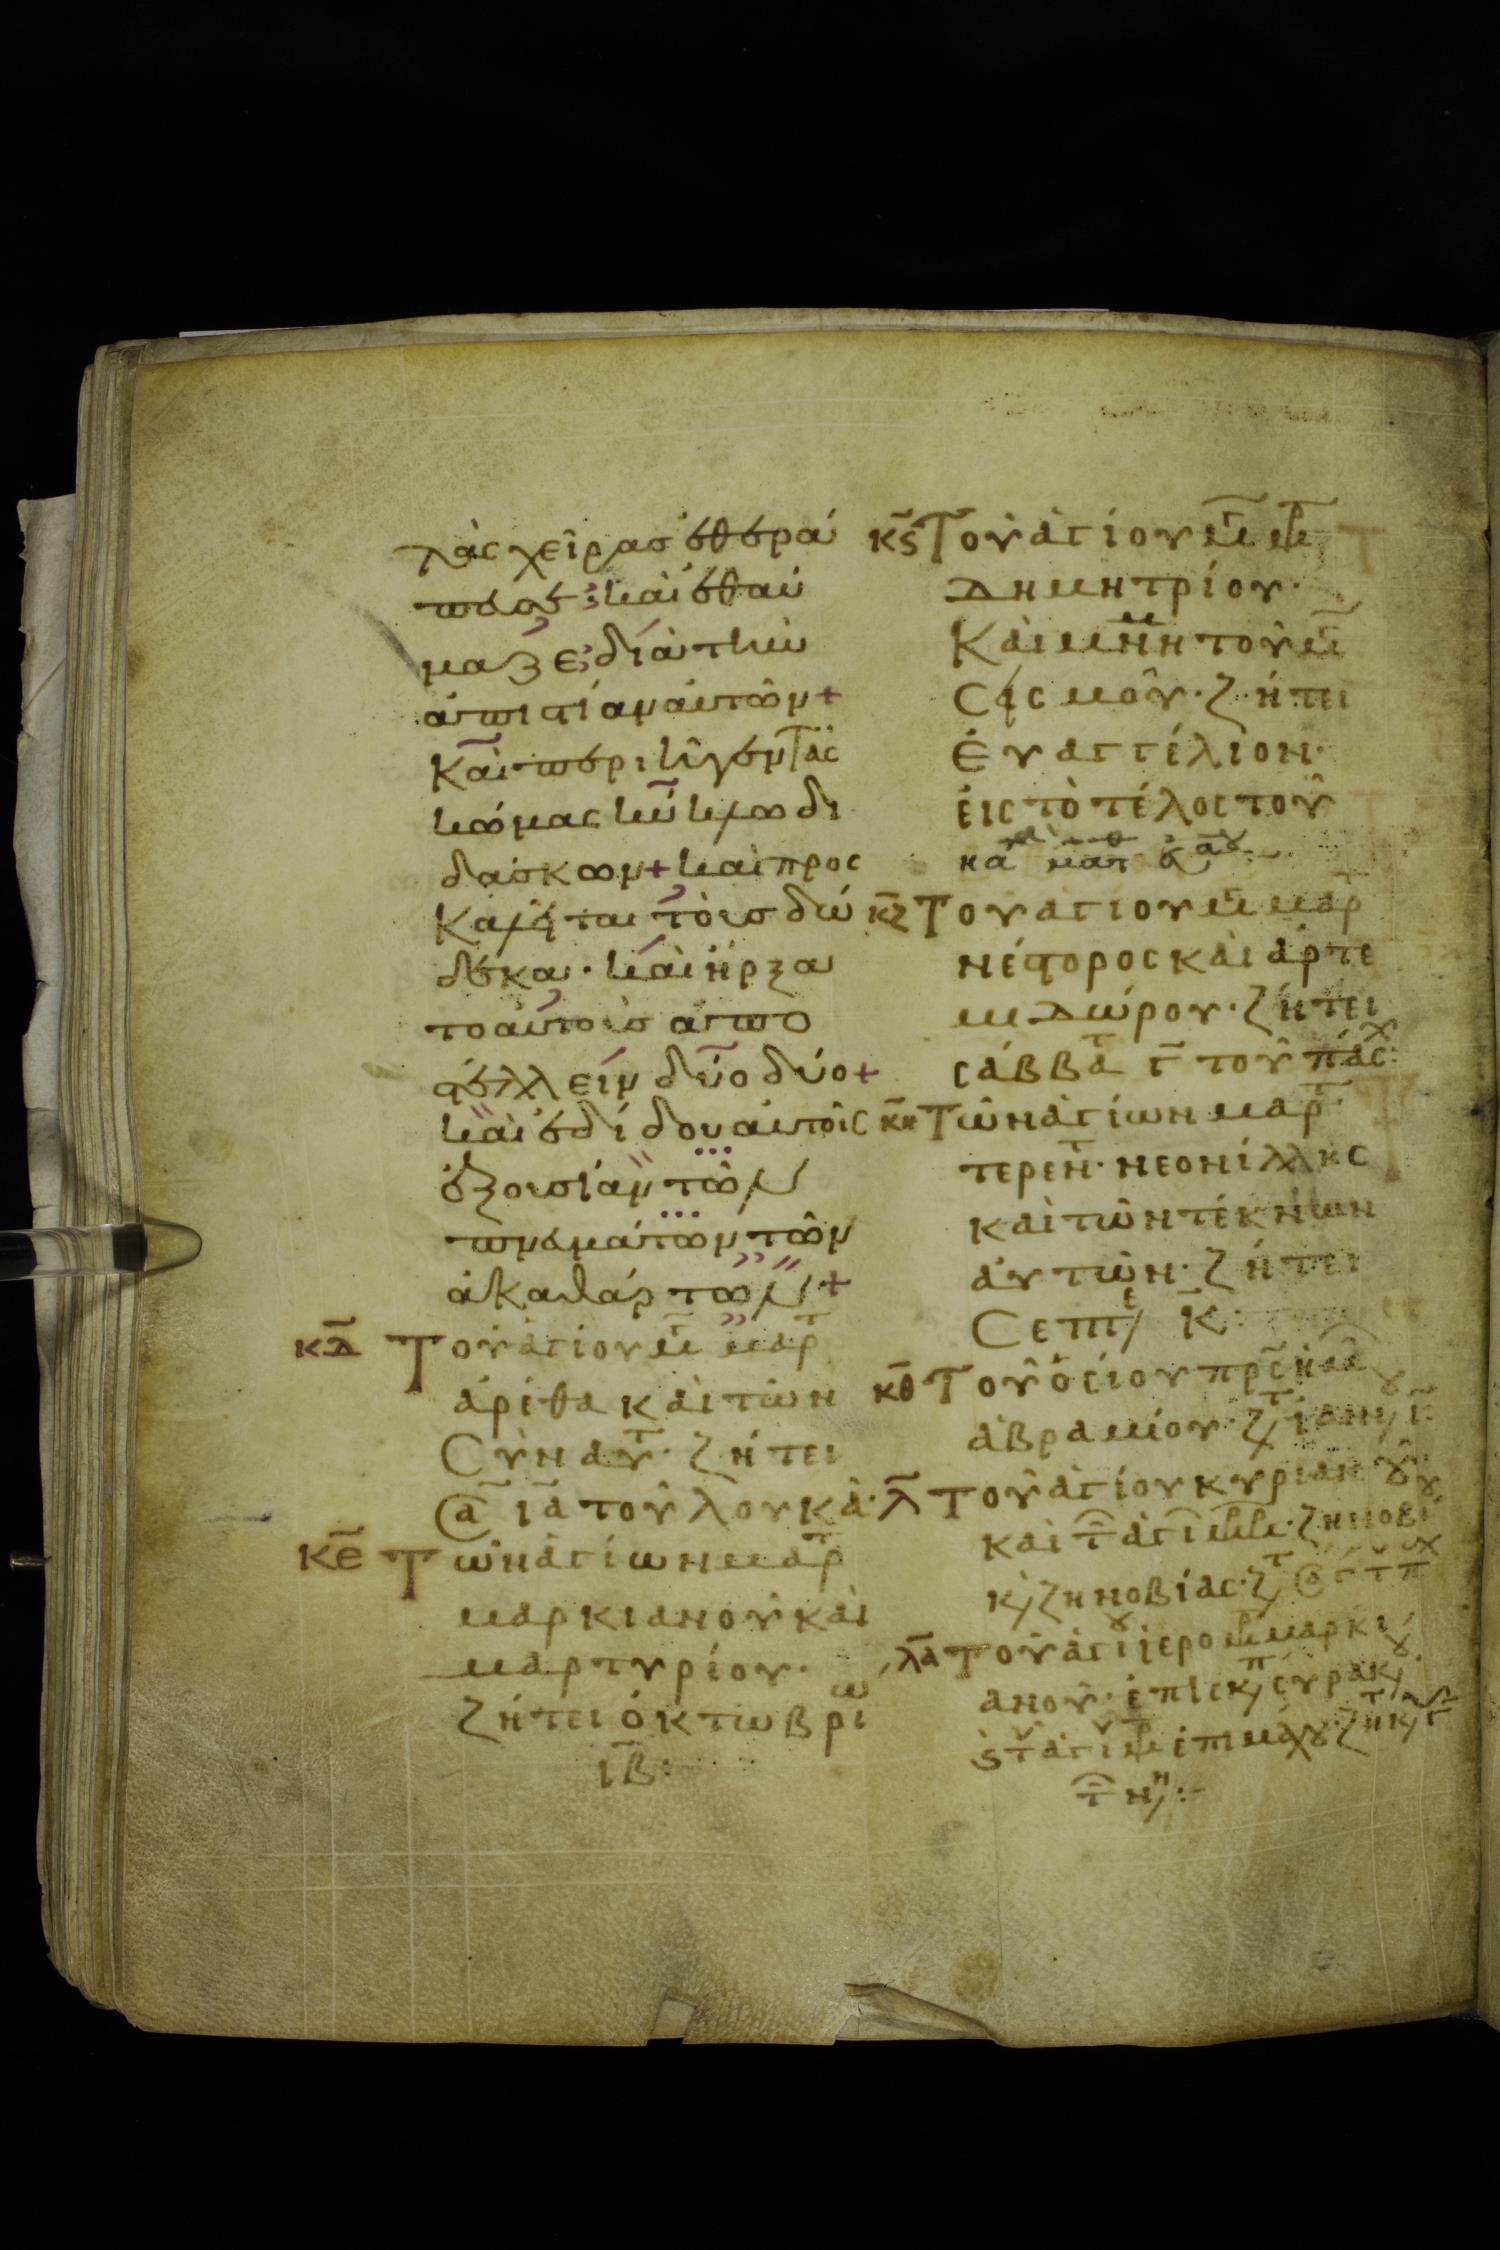 λὰς χεῖρασ ἐθερά
πευσε· καὶ ἐθαύ
μαζε διὰ τὴν
ἀπιστίαν αὐτῶν +
Καὶ περιῆγεν τὰς
κώμας κύκλω δι
δάσκων + καὶ προς
Καλεῖται τοὺσ δώ
δεκα· καὶ ἤρξα
το αὐτοὺσ ἀπο
στέλλειν δύο δύο +
καὶ ἐδίδου αὐτοῖς
ἐξουσίαν τῶν
πνευμάτων τῶν
ἀκαθάρτων +
κδ Τοῦ ἁγίου μεγ μαρτ
ἀρέθα καὶ τῶν
Σὺν αυτ· ζήτει
Σα ια τοῦ λουκᾶ·
κε Τῶν ἁγίων μαρτ
μαρκιανοῦ καὶ
μαρτυρίου·
ζήτει ὀκτωβρι
ιβ:
κς Τοῦ ἁγίου μεγ μρ
Δημητρίου·
Καὶ μνήμη τοῦ μεγ
Σεισμοῦ· ζήτει
Εὐαγγέλιον·
εἰς τὸ τέλος τοῦ
κζ Του αγιου μεγ μαρ
νέστορος καὶ ἀρτε
μιδώρου· ζήτει
σάββατ γ τοῦ πάσχ:
κη Τῶν ἁγίων μαρτ
τερεντ· νεονίλλης
καὶ τῶν τέκνων
αὐτῶν· ζήτει
Σεπτε κ:
κθ Τοῦ ὁσίου πρς ἡμ
ἀβραμίου· ζτ ϊανου ι
λ Τοῦ ἁγίου κυριακοῦ
καὶ τ ἁγι μμ· ζηνοβίου
κ ζηνοβίας· ζτ Σα γ τ π
λα Τοῦ ἁγι ἱερομ μαρκι
ανοῦ· ἐπισκπ συρακ